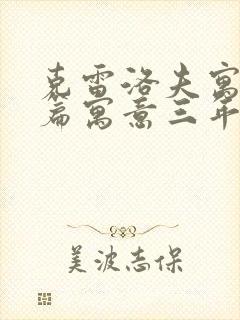 克雷洛夫寓
篇寓意三年
美波志保